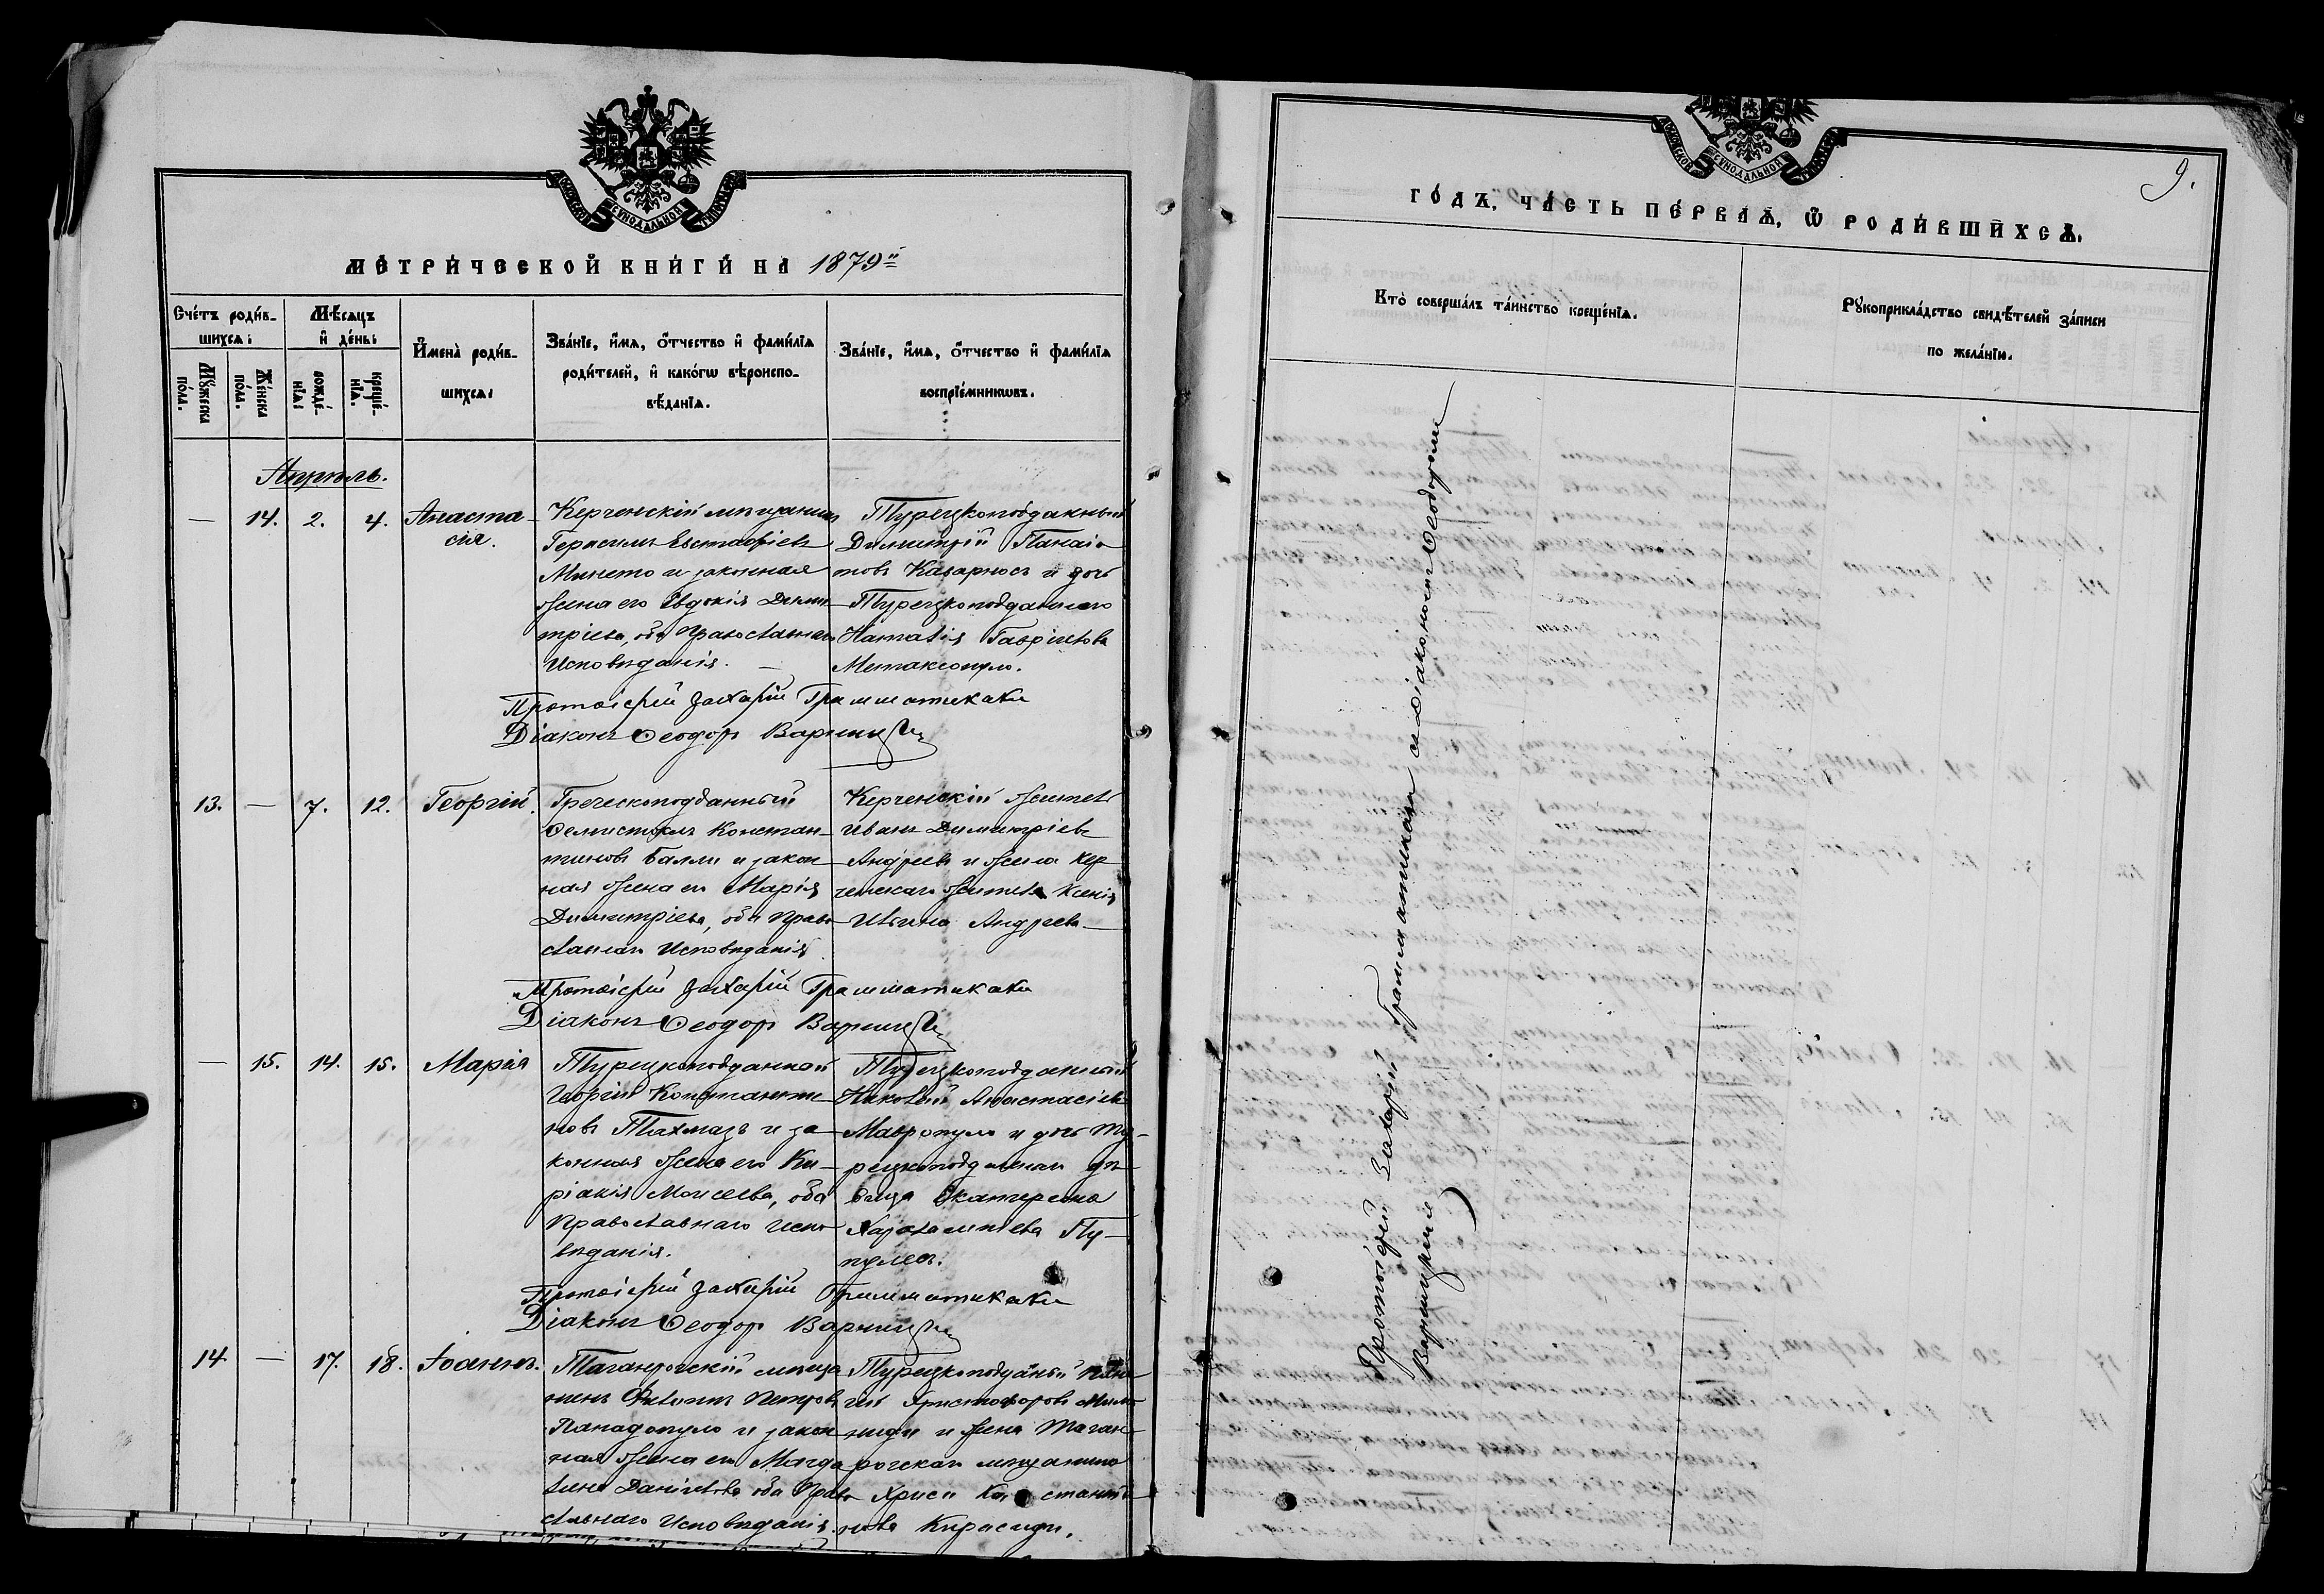 МЕТРИЧЕСКОЙ КНИГИ НА 1879й
Счетъ родив-
шихся:
Мужеска
пола.
Женска
пола.
Мѣсяцъ
и день:
рожде-
нія:
креще-
нія.
Имена родив-
шихся:
Званіе, имя, отчество и фамилія
родителей, и какогѡ вѣроиспо-
вѣданія.
Званіе, имя, отчество и фамилія
воспріемникѡвъ.
Апрѣль.
— 14. 2. 4. Анаста-
сія.
Керченскій мѣщанинъ
Герасимъ Евстафіевъ
Минето и законная
жена его Евдокія Дими-
тріева, оба Православнаго
Исповѣданія. —
Турецкоподданный
Димитрій Панаіо
товъ и дочь
Турецкоподданнаго
Наталія Гавріилова
Метаксопуло.
Протоіерей Захарій Грамматикаки
Діаконъ Ѳеодоръ
13. — 7. 12. Георгій.
Греческоподданный
Ѳемистоклъ Констан-
тиновъ Балли и закон
ная жена его Марія
Димитріева, оба Право
славнаго Исповѣданія.
Керченскій житель
Иванъ Димитріевъ
Андреевъ и жена Кер
ченскаго жителя Ксенія
Ильина Андреева —
Протоіерей Захарій Грамматикаки
Діаконъ Ѳеодоръ
— 15. 14. 15. Марія
Турецкоподданной
Георгій Константи-
новъ Тахмазъ и за-
конная жена его Ки-
ріакія Моисеева, оба
Православнаго Испо
вѣданія.
Турецкоподданный
Николай Анастасіевъ
Мавропуло и дочь Ту-
рецкоподданнаго дѣ-
вица Екатерина
Харалампіева Пу-
пулеа.
Протоіерей Захарій Грамматикаки
Діаконъ Ѳеодоръ
14 — 17. 18. Іоаннъ.
Таганрогскій мѣща
нинъ Филиппъ Петровъ
Пападопуло и закон
ная жена его Магда
лина Даніилова оба Право
славнаго Исповѣданія.
Турецкоподданый
Христофоровъ
и жена Таган-
рогскаго мѣщанина
Хриси Константи
нова
ГОДЪ, ЧАСТЬ ПЕРВАЯ, Ѿ РОДИВШИХСЯ.
9.
Кто совершалъ таинство крещенія.
Рукоприкладство свидѣтелей записи
по желанію.
Протоіерей Захарій Грамматикаки съ Діакономъ Ѳеодоромъ